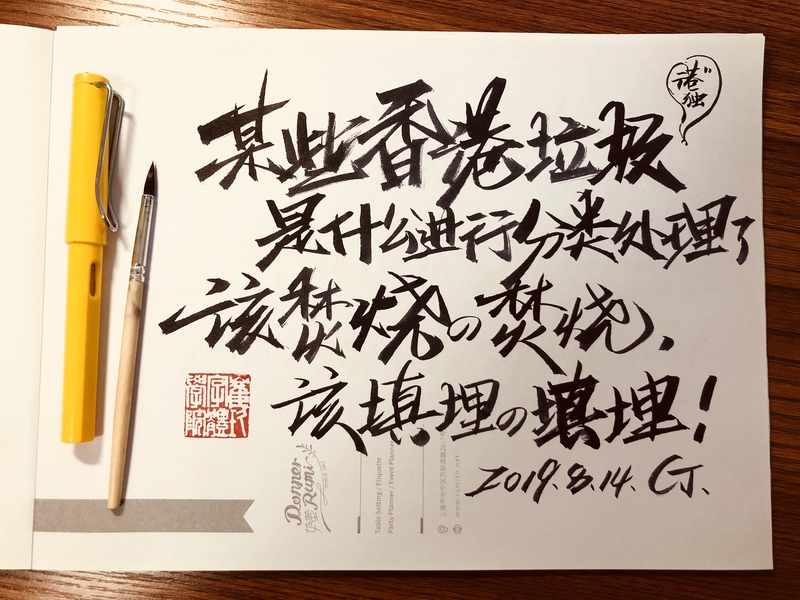 港"独
某些香港垃圾
是什么进行分类处理了
该焚烧の焚烧．
该填埋の填埋！
2019.8.14. CJ.
字體
學院
Rumi
Table Setting / Etiquette
Party Planner / Event